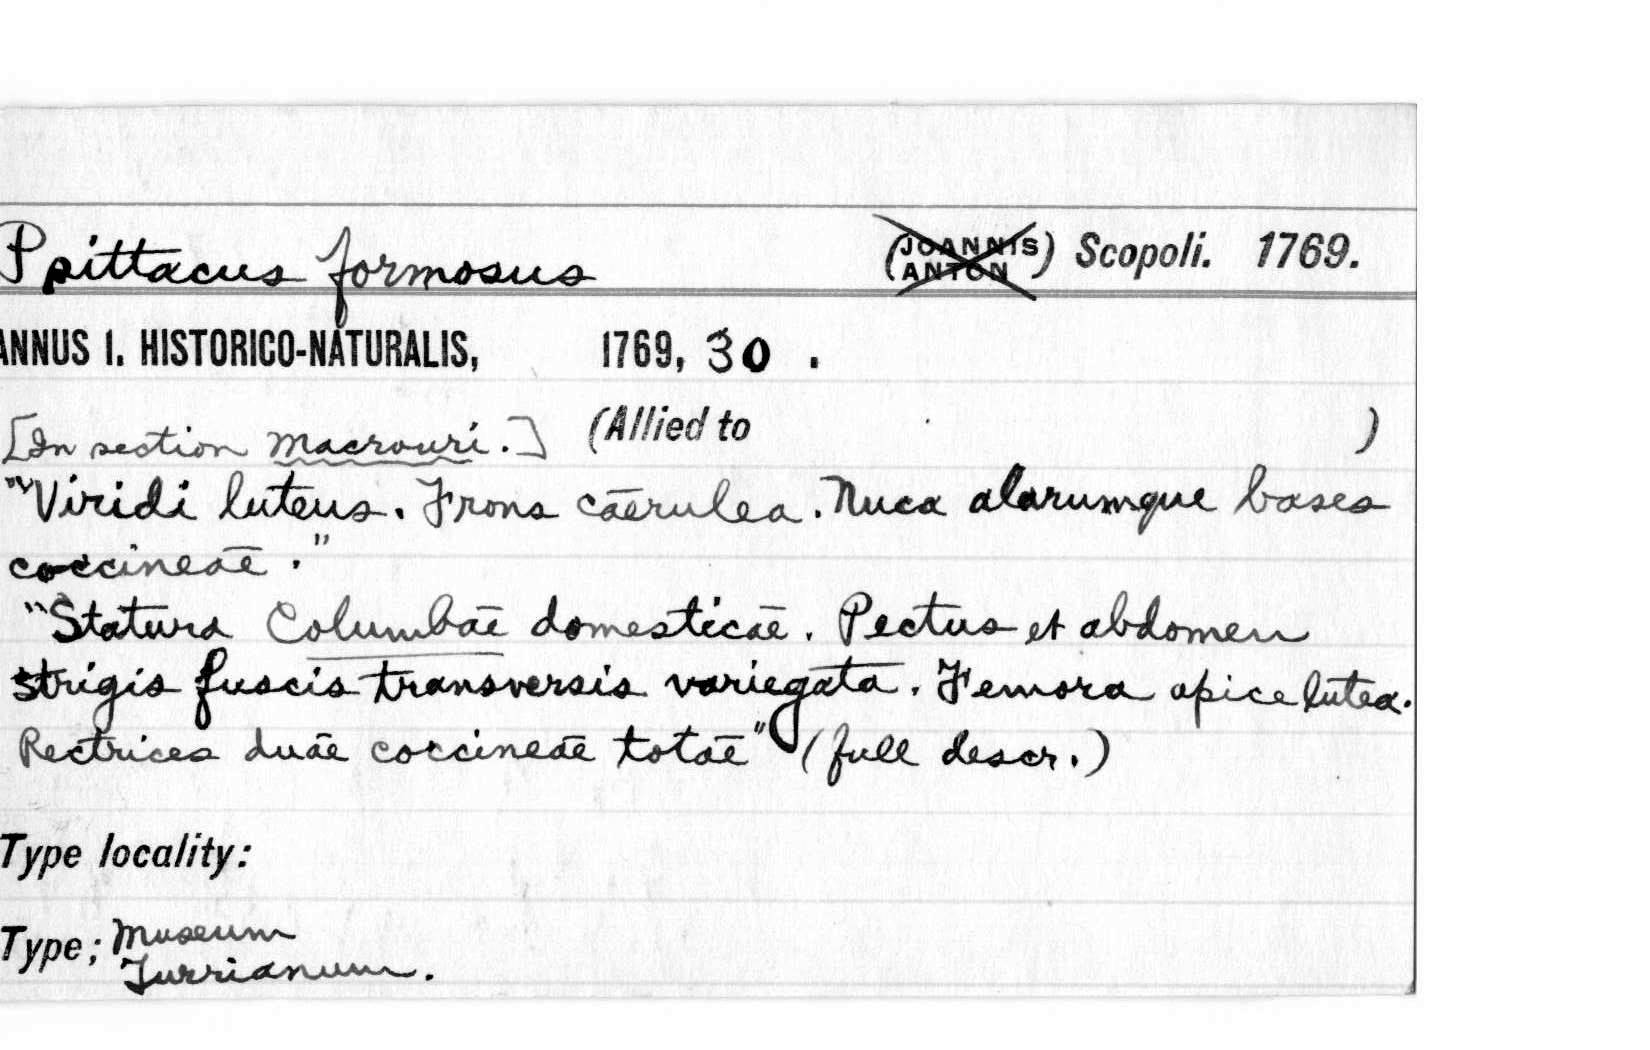 Psittacus formosus (JOANNIS ANTON) Scopoli. 1769.
ANNUS I. HISTORICO-NATURALIS, 1769, 30 .
[In section Macrouri.] (Allied to )
"Viridi luteus. Frons cāerulea. Nuca alarumque bases
coccineāe."
"Statura Columbāe domesticāe. Pectus et abdomen
strigis fuscis transversis variegata. Femora apice lutea.
Rectrices duāe coccineāe totāe" (full descr.)
Type locality:
Type; Museum
Turrianum.